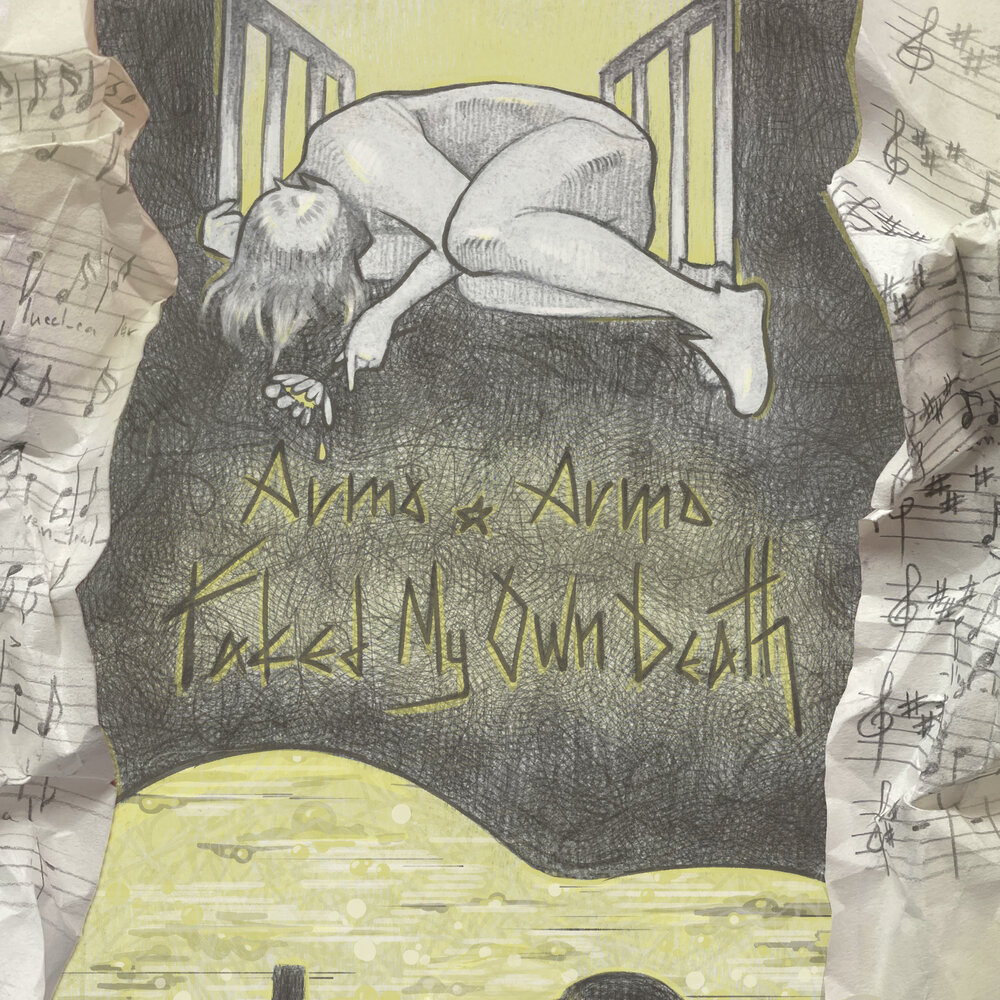 Armo ☆ Armo
Faked My Own Death